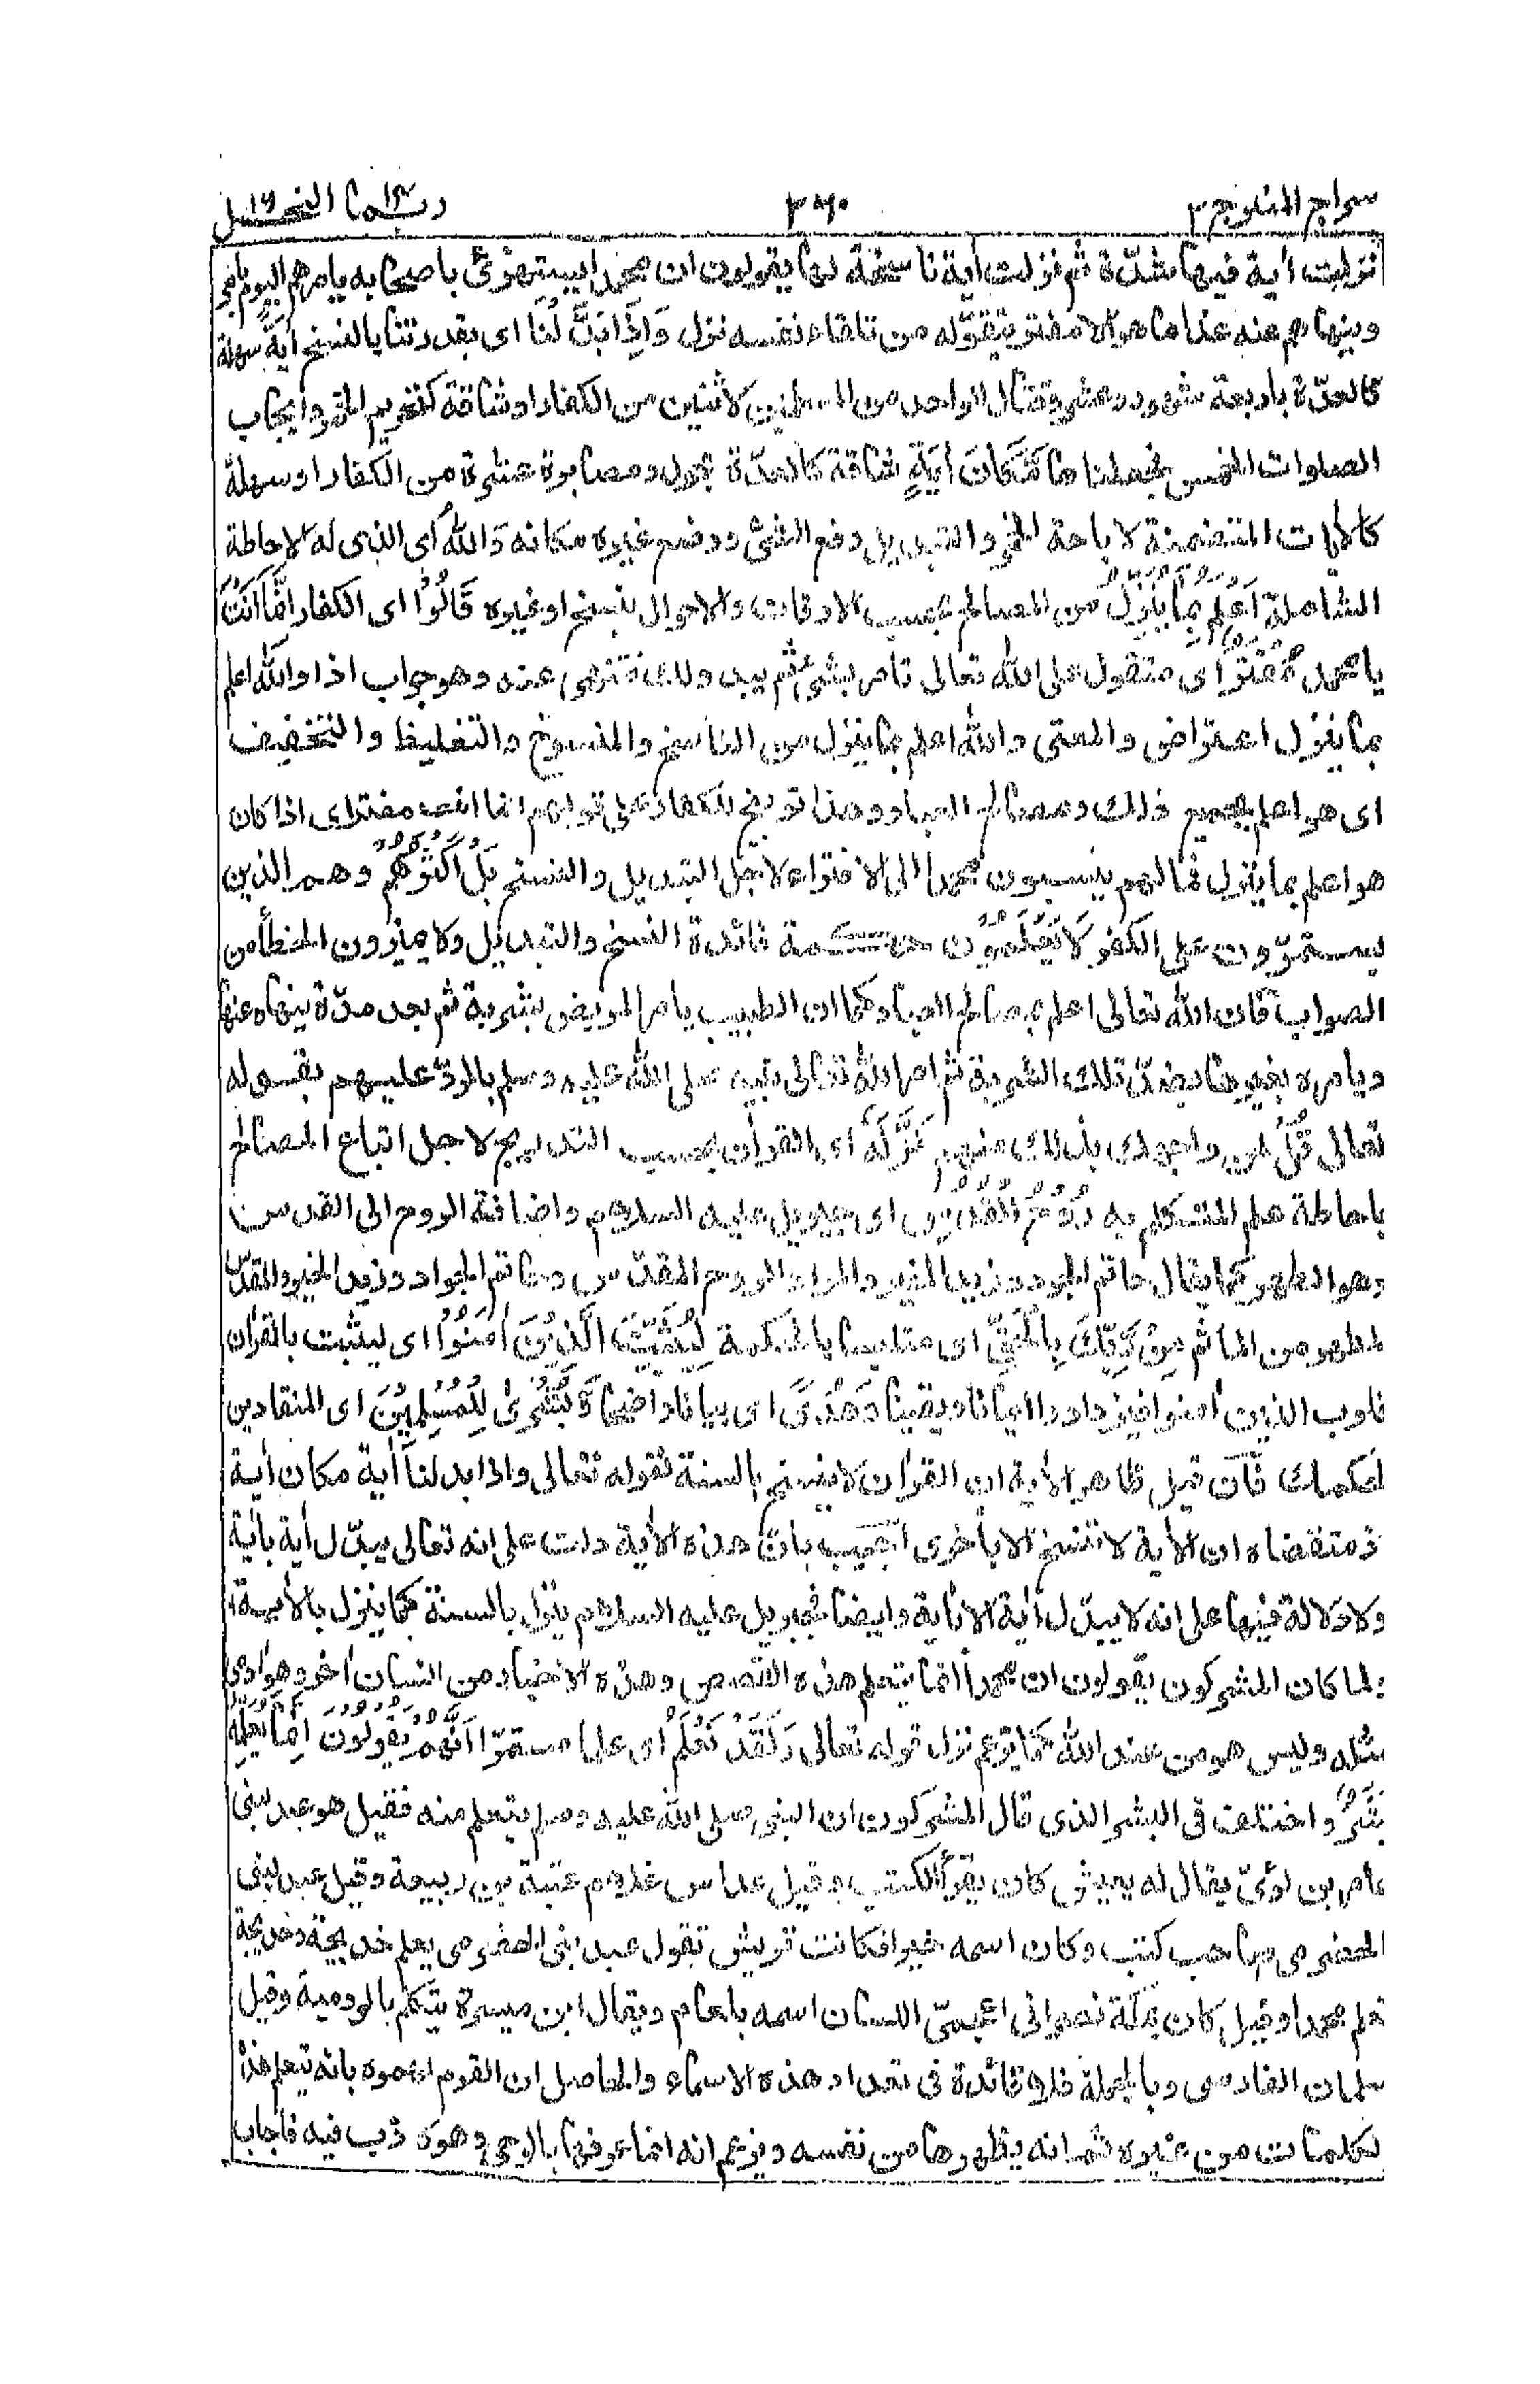 سراج المنير ج ٢ ٣٦٠ ربما ١٤ النحل ١٦
نزلت أية فيها شدّة ثم نزلت أية ناسخة لها يقولون ان محمدا يستهزئ باصحابه يامرهم اليوم بامر
وينهاهم عنه غدا ما هو الا مفتر يتقوّله من تلقاء نفسه نزل وَاِذَا بَدَّلْنَا اى بقدرتنا بالنسخ اٰيَةً سهلة
كالعدّة باربعة شهور وعشر وقتال الواحد من المسلمين لاثنين من الكفار او شاقة كتحريم الخمر وايجاب
الصلوات الخمس فجعلناها مَّكَانَ اٰيَةٍ شاقة كالعدّة بحول ومصابرة عشرة من الكفار او سهلة
كالأيات المتضمنة لاباحة الخمر والتبديل رفع الشئ ووضع غيره مكانه وَاللهُ اى الذى له الاحاطة
الشاملة اَعْلَمُ بِمَا يُنَزِّلُ من المصالح بحسب الاوقات والاحوال بنسخ او غيره قَالُوْٓا اى الكفار اِنَّمَآ اَنْتَ
يا محمد مُفْتَرٍ اى متقول على الله تعالى تامر بشئ ثم يبدو لك فتنهى عنه وهو جواب اذا والله اعلم
بما ينزل اعتراض والمعنى والله اعلم بما ينزل من الناسخ والمنسوخ والتغليظ والتخفيف
اى هو اعلم بجميع ذلك ومصالح العباد وهذا توبيخ للكفار على قولهم انما انت مفتر اى اذا كان
هو اعلم بما ينزل فما لهم ينسبون محمدا الى الافتراء لاجل التبديل والنسخ بَلْ اَكْثَرُهُمْ وهم الذين
يستمرّون على الكفر لَا يَعْلَمُوْنَ حكمة فائدة النسخ والتبديل ولا يميزون الخطأ من
الصواب فان الله تعالى اعلم بمصالح العباد كما ان الطبيب يامر المريض بشربة ثم بعد مدّة ينهاه عنها
ويامره بغيرها بضدّ تلك الشربة ثم امر الله تعالى نبيه صلى الله عليه وسلم بالردّ عليهم بقوله
تعالى قُلْ لمن واجهك بذلك منهم نَزَّلَهُ اى القرأن بحسب التدريج لاجل اتباع المصالح
باحاطة علم المتكلم به رُوْحُ الْقُدُسِ اى جبريل عليه السلام واضافة الروح الى القدس
وهو الطهر كما يقال حاتم الجود وزيد الخير والمراد الروح المقدّس وحاتم الجواد وزيد الخير والمقدّس
المطهر من المأثم مِنْ رَّبِّكَ بِالْحَقِّ اى متلبسا بالحكمة لِيُثَبِّتَ الَّذِيْنَ اٰمَنُوْا اى ليثبت بالقرأن
قلوب الذين أمنوا فيزدادوا ايمانا ويقينا وَهُدًى اى بيانا واضحا وَّبُشْرٰى لِلْمُسْلِمِيْنَ اى المنقادين
لحكمك فَاِن قيل ظاهر الأية ان القرأن لا ينسخ بالسنة لقوله تعالى واذا بدلنا أية مكان أية
فمقتضاه ان الأية لا تنسخ الا باخرى اُجيب بانّ هذه الأية دلت على انه تعالى يبدّل أية بأية
ولا دلالة فيها على انه لا يبدّل أية الا بأية وايضا فجبريل عليه السلام ينزل بالسنة كما ينزل بالأية
ولما كان المشركون يقولون ان محمدا انما يتعلم هذه القصص وهذه الاخبار من انسان أخر وهو أدمى
مثله وليس هو من عند الله كما يزعم نزل قوله تعالى وَلَقَدْ نَعْلَمُ اى علما مستمرّا اَنَّهُمْ يَقُوْلُوْنَ اِنَّمَا يُعَلِّمُهٗ
بَشَرٌ واختلف فى البشر الذى قال المشركون ان النبى صلى الله عليه وسلم يتعلم منه فقيل هو عبد لبنى
عامر بن لؤىّ يقال له يعيش كان يقرأ الكتب وقيل عداس غلام عتبة بن ربيعة وقيل عبد لبنى
الحضرمى صاحب كتب وكان اسمه خيرا فكانت قريش تقول عبد بنى الحضرمى يعلم خديجة وخديجة
تعلم محمدا وقيل كان بمكة نصرانى اعجمىّ اللسان اسمه بلعام ويقال ابن ميسرة يتكلم بالرومية وقيل
سلمان الفارسى وبالجملة فلا فائدة فى تعداد هذه الاسماء والحاصل ان القوم اتهموه بانه يتعلم هذه
الكلمات من غيره ثم انه يظهرها من نفسه ويزعم انه انما عرفها بالوحى وهو كذب فيه فاجاب